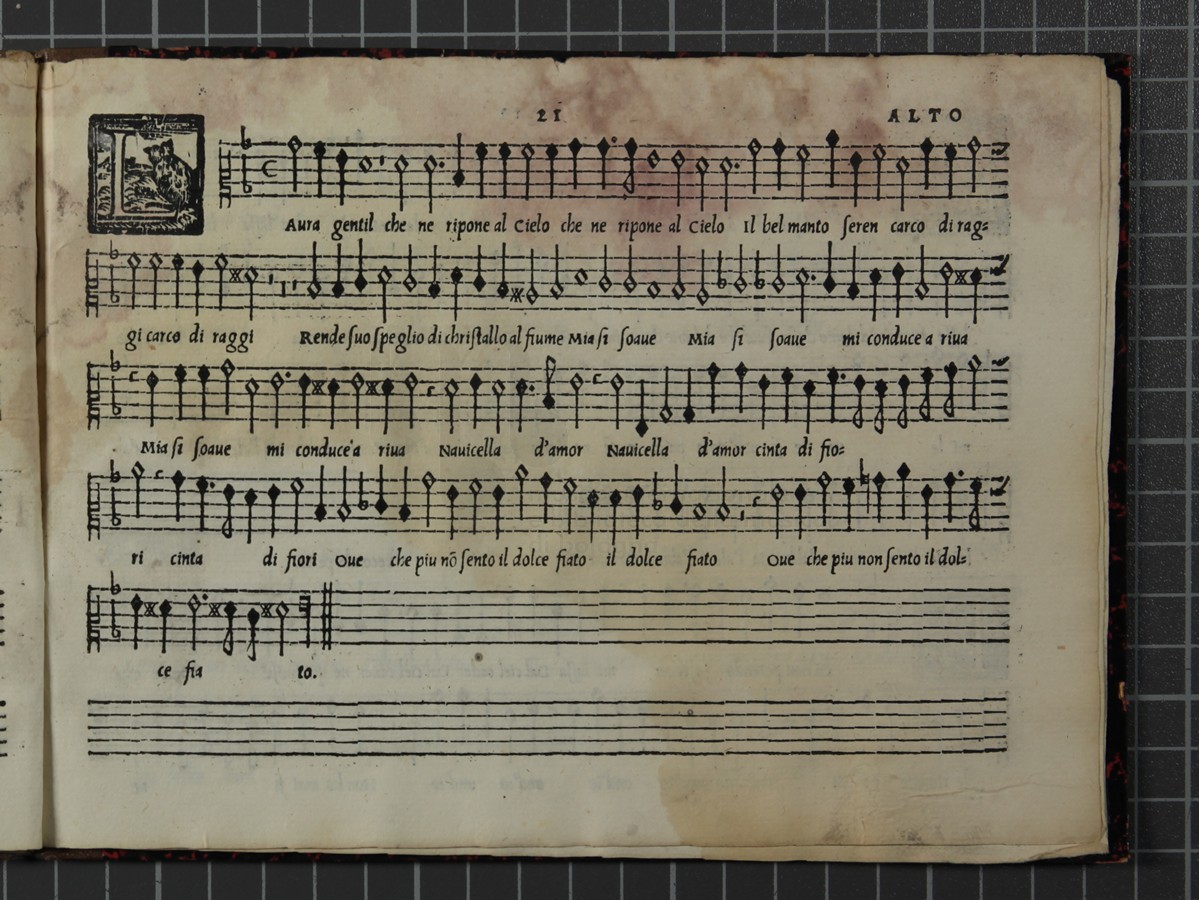 21 ALTO
L Aura gentil che ne ripone al Cielo che ne ripone al Cielo Il bel manto ſeren carco di rag=
gi carco di raggi Rende ſuo ſpeglio di chriſtallo al fiume Mia ſi ſoaue Mia ſi ſoaue mi conduce a riua
Mia ſi ſoaue mi conduce a riua Nauicella d'amor Nauicella d'amor cinta di fio=
ri cinta di fiori Oue che piu nõ ſento il dolce fiato il dolce fiato Oue che piu non ſento il dol=
ce fia to.